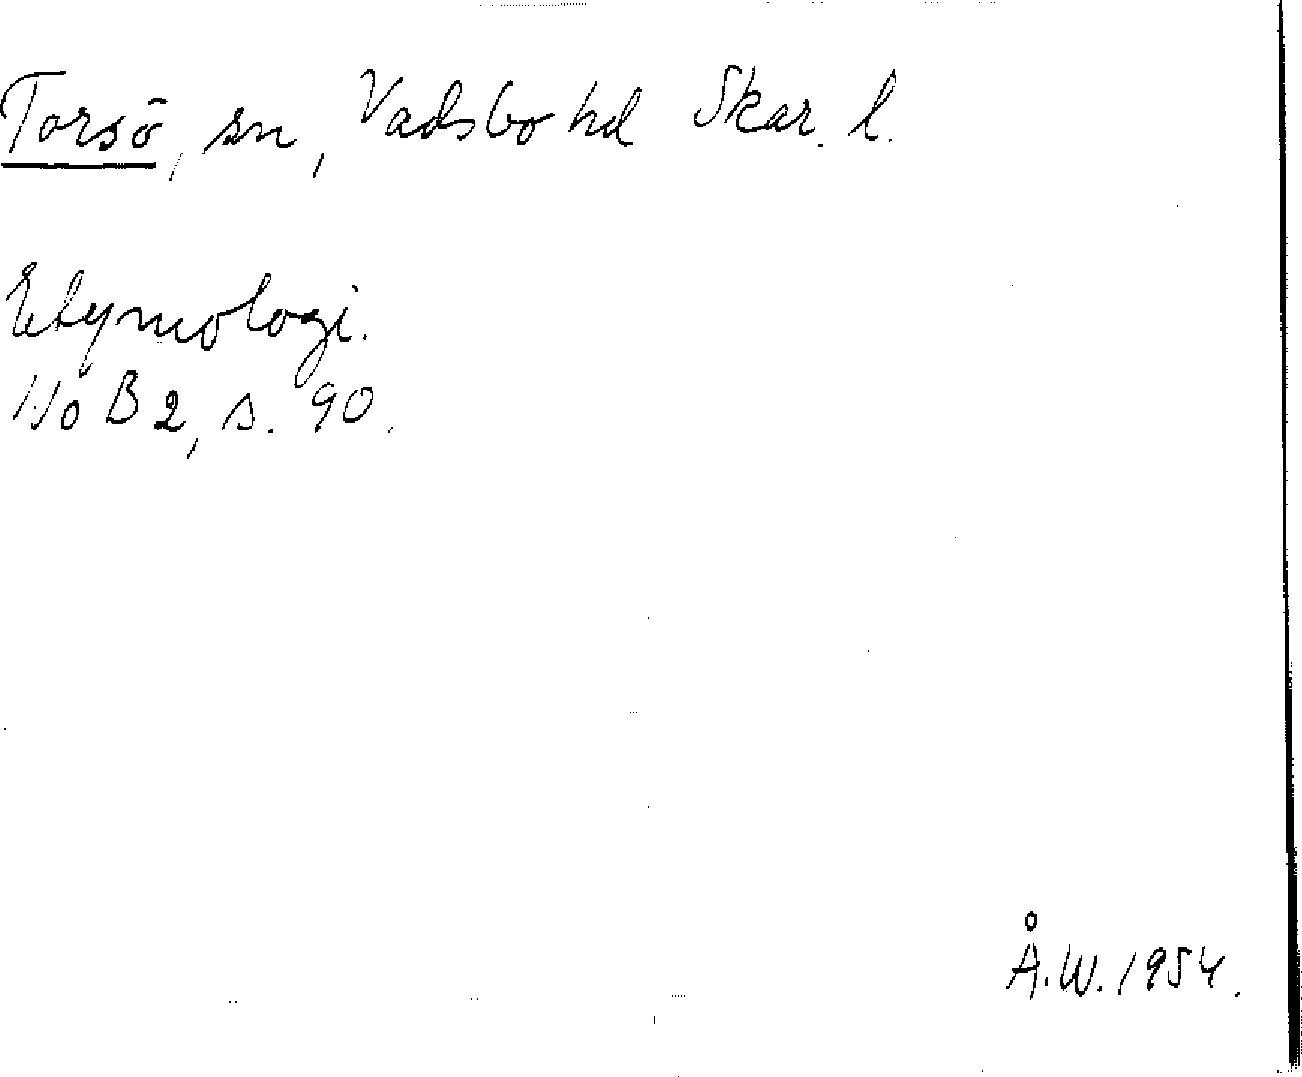 Torsö, sn, Vadsbo hd Skar. l.
Etymologi.
NoB 2, s. 90.
Å.W. 1954.